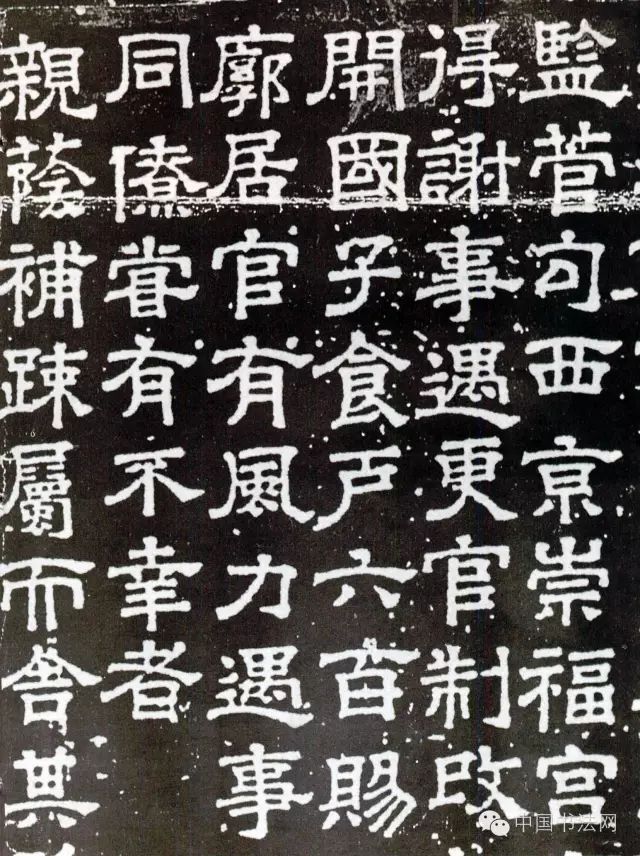 監菅句西京崇福宫
得謝事遇更官制改
開國子食戶六百賜
廓居官有風力遇事
同僚甞有不幸者
親蔭補踈屬而舍其
中国书法网